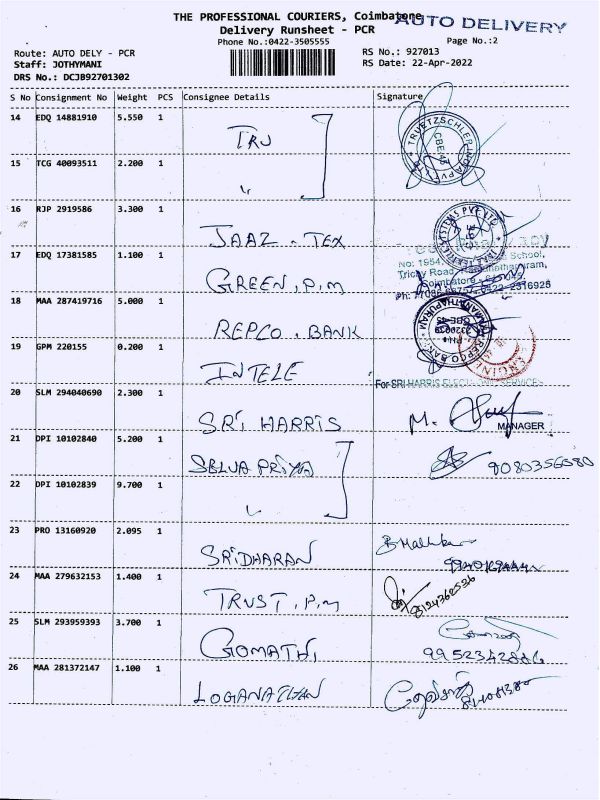 THE PROFESSIONAL COURIERS, Coimbatore
AUTO DELIVERY
Delivery Runsheet - PCR
Phone No.:0422-3505555
Page No.:2
Route: AUTO DELY - PCR
RS No.: 927013
Staff: JOTHYMANI
RS Date: 22-Apr-2022
DRS No.: DCJB92701302
S No Consignment No Weight PCS Consignee Details Signature
14 EDQ 14881910 5.550 1 TRU
15 TCG 40093511 2.200 1 "
16 RJP 2919586 3.300 1 JAAZ . TEX
17 EDQ 17381585 1.100 1 GREEN . P.M
18 MAA 287419716 5.000 1 REPCO . BANK
19 GPM 220155 0.200 1 INTELE
For SRI HARRIS
20 SLM 294040690 2.300 1 SRI HARRIS M.
MANAGER
21 DPI 10102840 5.200 1 SELVA PRIYA 9080356580
22 DPI 10102839 9.700 1 "
23 PRO 13160920 2.095 1 SRIDHARAN
24 MAA 279632153 1.400 1 TRUST . P.M 8124362536
25 SLM 293959393 3.700 1 GOMATHI 9952342886
26 MAA 281372147 1.100 1 LOGANATHAN